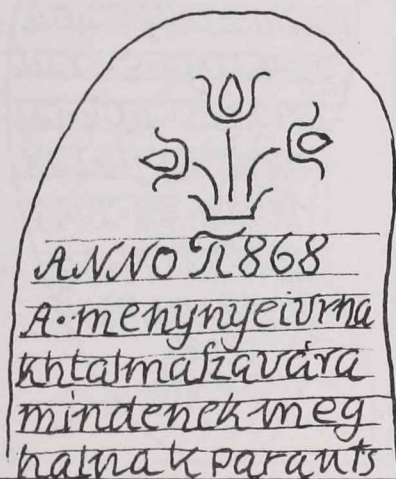 ANNO 1868
A·menynyeiurna
khtalmaſzavára
mindenek meg
halnak parants